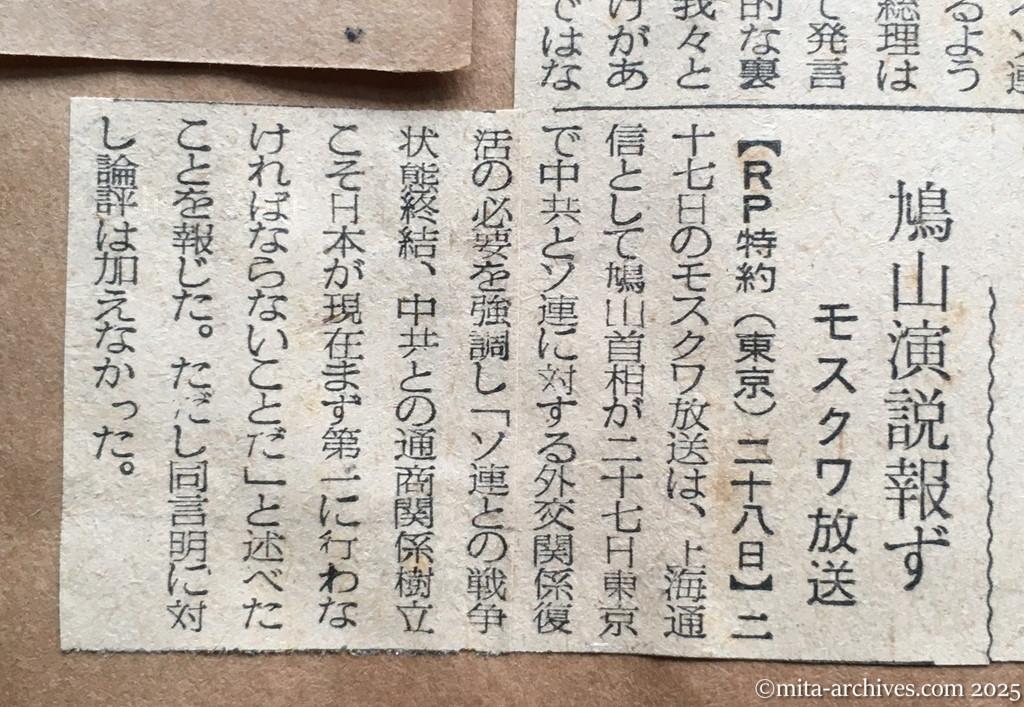 ソ連
るよう
総理は
て発言
的な裏
我々と
けがあ
ではな
鳩山演説報ず
モスクワ放送
【RP特約(東京)二十八日】二
十七日のモスクワ放送は、上海通
信として鳩山首相が二十七日東京
で中共とソ連に対する外交関係復
活の必要を強調し「ソ連との戦争
状態終結、中共との通商関係樹立
こそ日本が現在まず第一に行わな
ければならないことだ」と述べた
ことを報じた。ただし同言明に対
し論評は加えなかった。
©mita-archives.com 2025